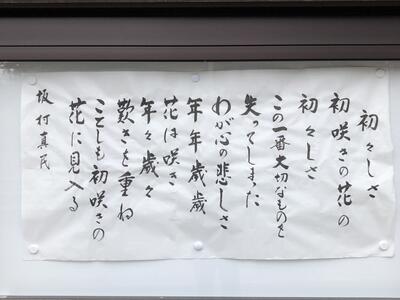 初々しさ
初咲きの花の
初々しさ
この一番大切なものを
失ってしまった
わが心の悲しさ
年年歳歳
花は咲き
年々歳々
歎きを重ね
ことしも初咲きの
花に見入る
坂村真民